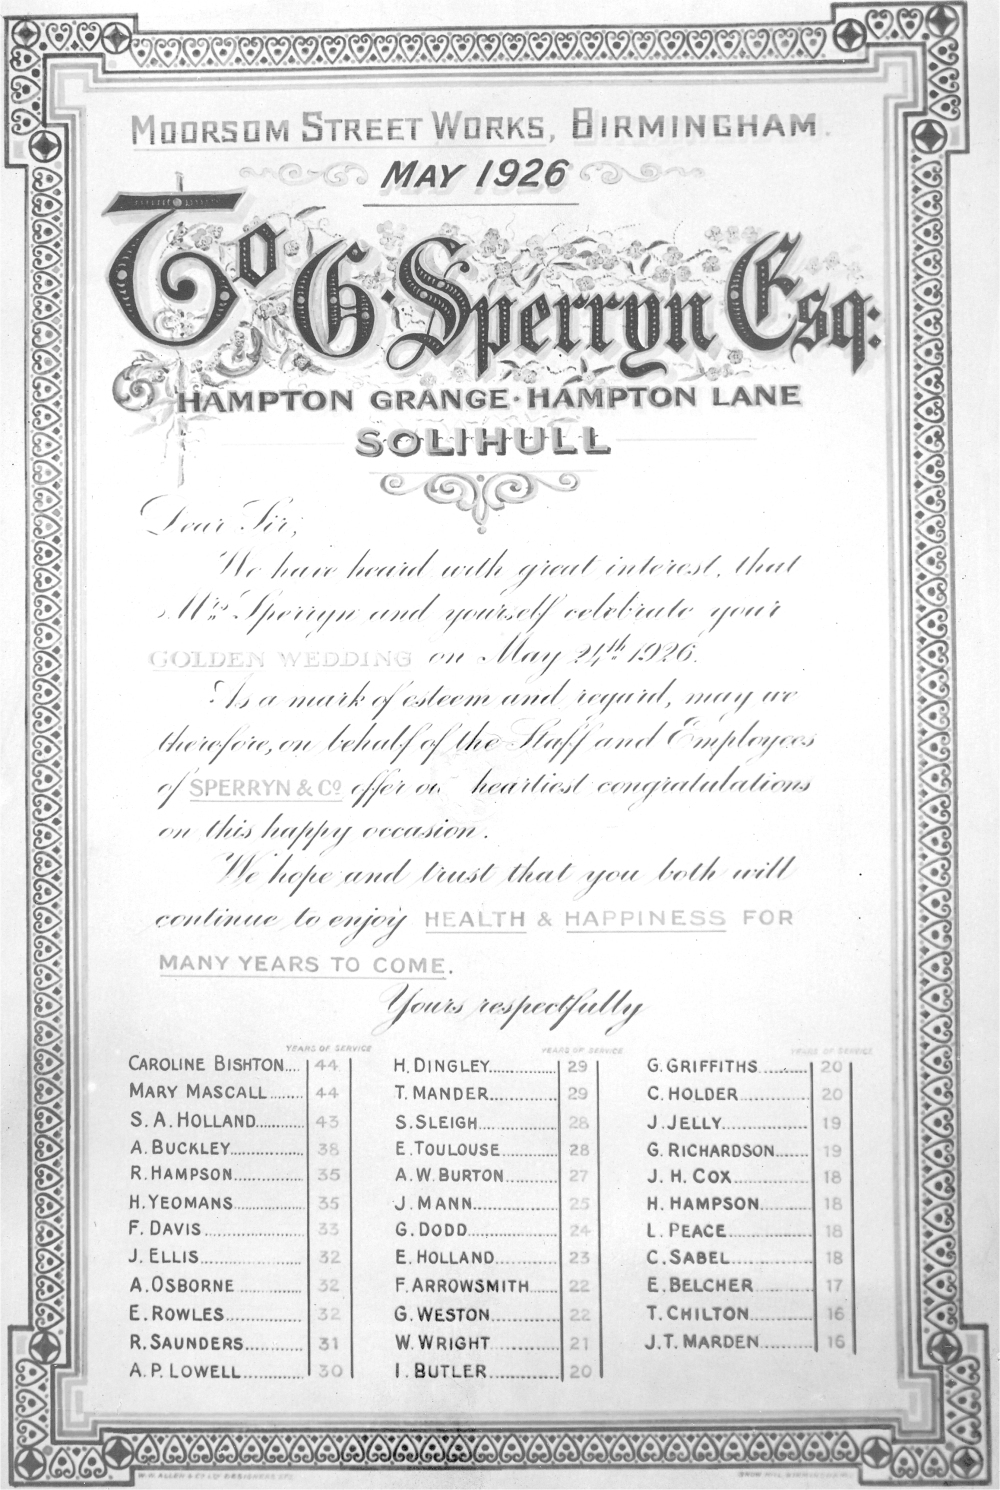 MOORSOM STREET WORKS, BIRMINGHAM.
MAY 1926
To G. Sperryn Esq:
HAMPTON GRANGE · HAMPTON LANE
SOLIHULL
Dear Sir,
We have heard with great interest, that
Mrs. Sperryn and yourself celebrate your
GOLDEN WEDDING on May 24th 1926.
As a mark of esteem and regard, may we
therefore, on behalf of the Staff and Employees
of SPERRYN & Co offer our heartiest congratulations
on this happy occasion.
We hope and trust that you both will
continue to enjoy HEALTH & HAPPINESS FOR
MANY YEARS TO COME.
Yours respectfully
YEARS OF SERVICE
CAROLINE BISHTON.... 44
MARY MASCALL....... 44
S. A. HOLLAND........... 43
A. BUCKLEY................ 38
R. HAMPSON............... 35
H. YEOMANS............... 35
F. DAVIS..................... 33
J. ELLIS...................... 32
A. OSBORNE.............. 32
E. ROWLES................. 32
R. SAUNDERS............. 31
A. P. LOWELL.............. 30
YEARS OF SERVICE
H. DINGLEY................ 29
T. MANDER................ 29
S. SLEIGH................... 28
E. TOULOUSE............. 28
A. W. BURTON............ 27
J. MANN..................... 25
G. DODD..................... 24
E. HOLLAND............... 23
F. ARROWSMITH....... 22
G. WESTON................ 22
W. WRIGHT................ 21
I. BUTLER................... 20
YEARS OF SERVICE
G. GRIFFITHS............. 20
C. HOLDER................. 20
J. JELLY..................... 19
G. RICHARDSON........ 19
J. H. COX................... 18
H. HAMPSON.............. 18
L. PEACE................... 18
C. SABEL................... 18
E. BELCHER............... 17
T. CHILTON................ 16
J. T. MARDEN............. 16